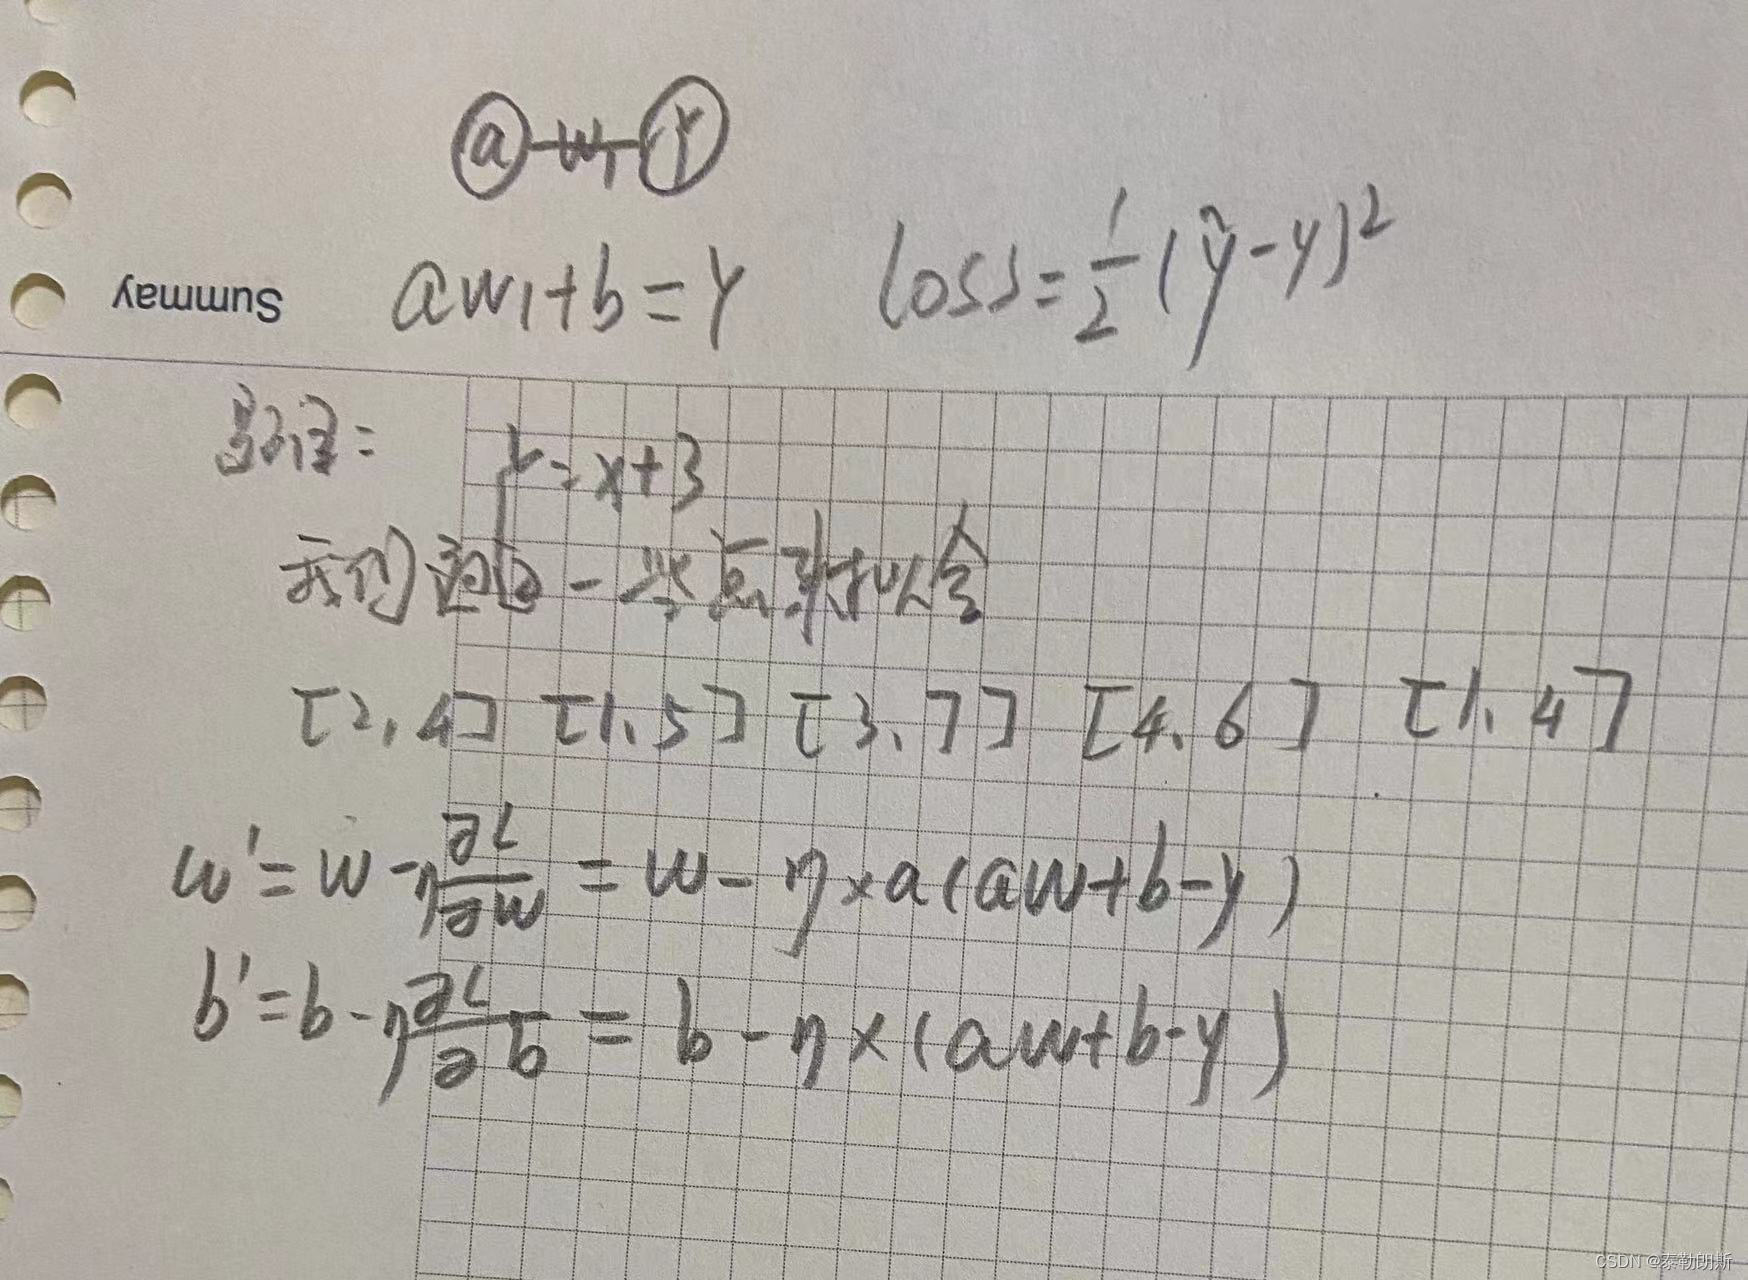 a w₁ Y
aw₁+b=Y loss=1/2(ŷ-y)²
Summay
验证:
Y=x+3
我们通过一些点来拟合
[2,4] [1,5] [3,7] [4,6] [1,4]
w'=w-η∂L/∂w=w-η×a(aw+b-y)
b'=b-η∂L/∂b=b-η×(aw+b-y)
CSDN @泰勒朗斯